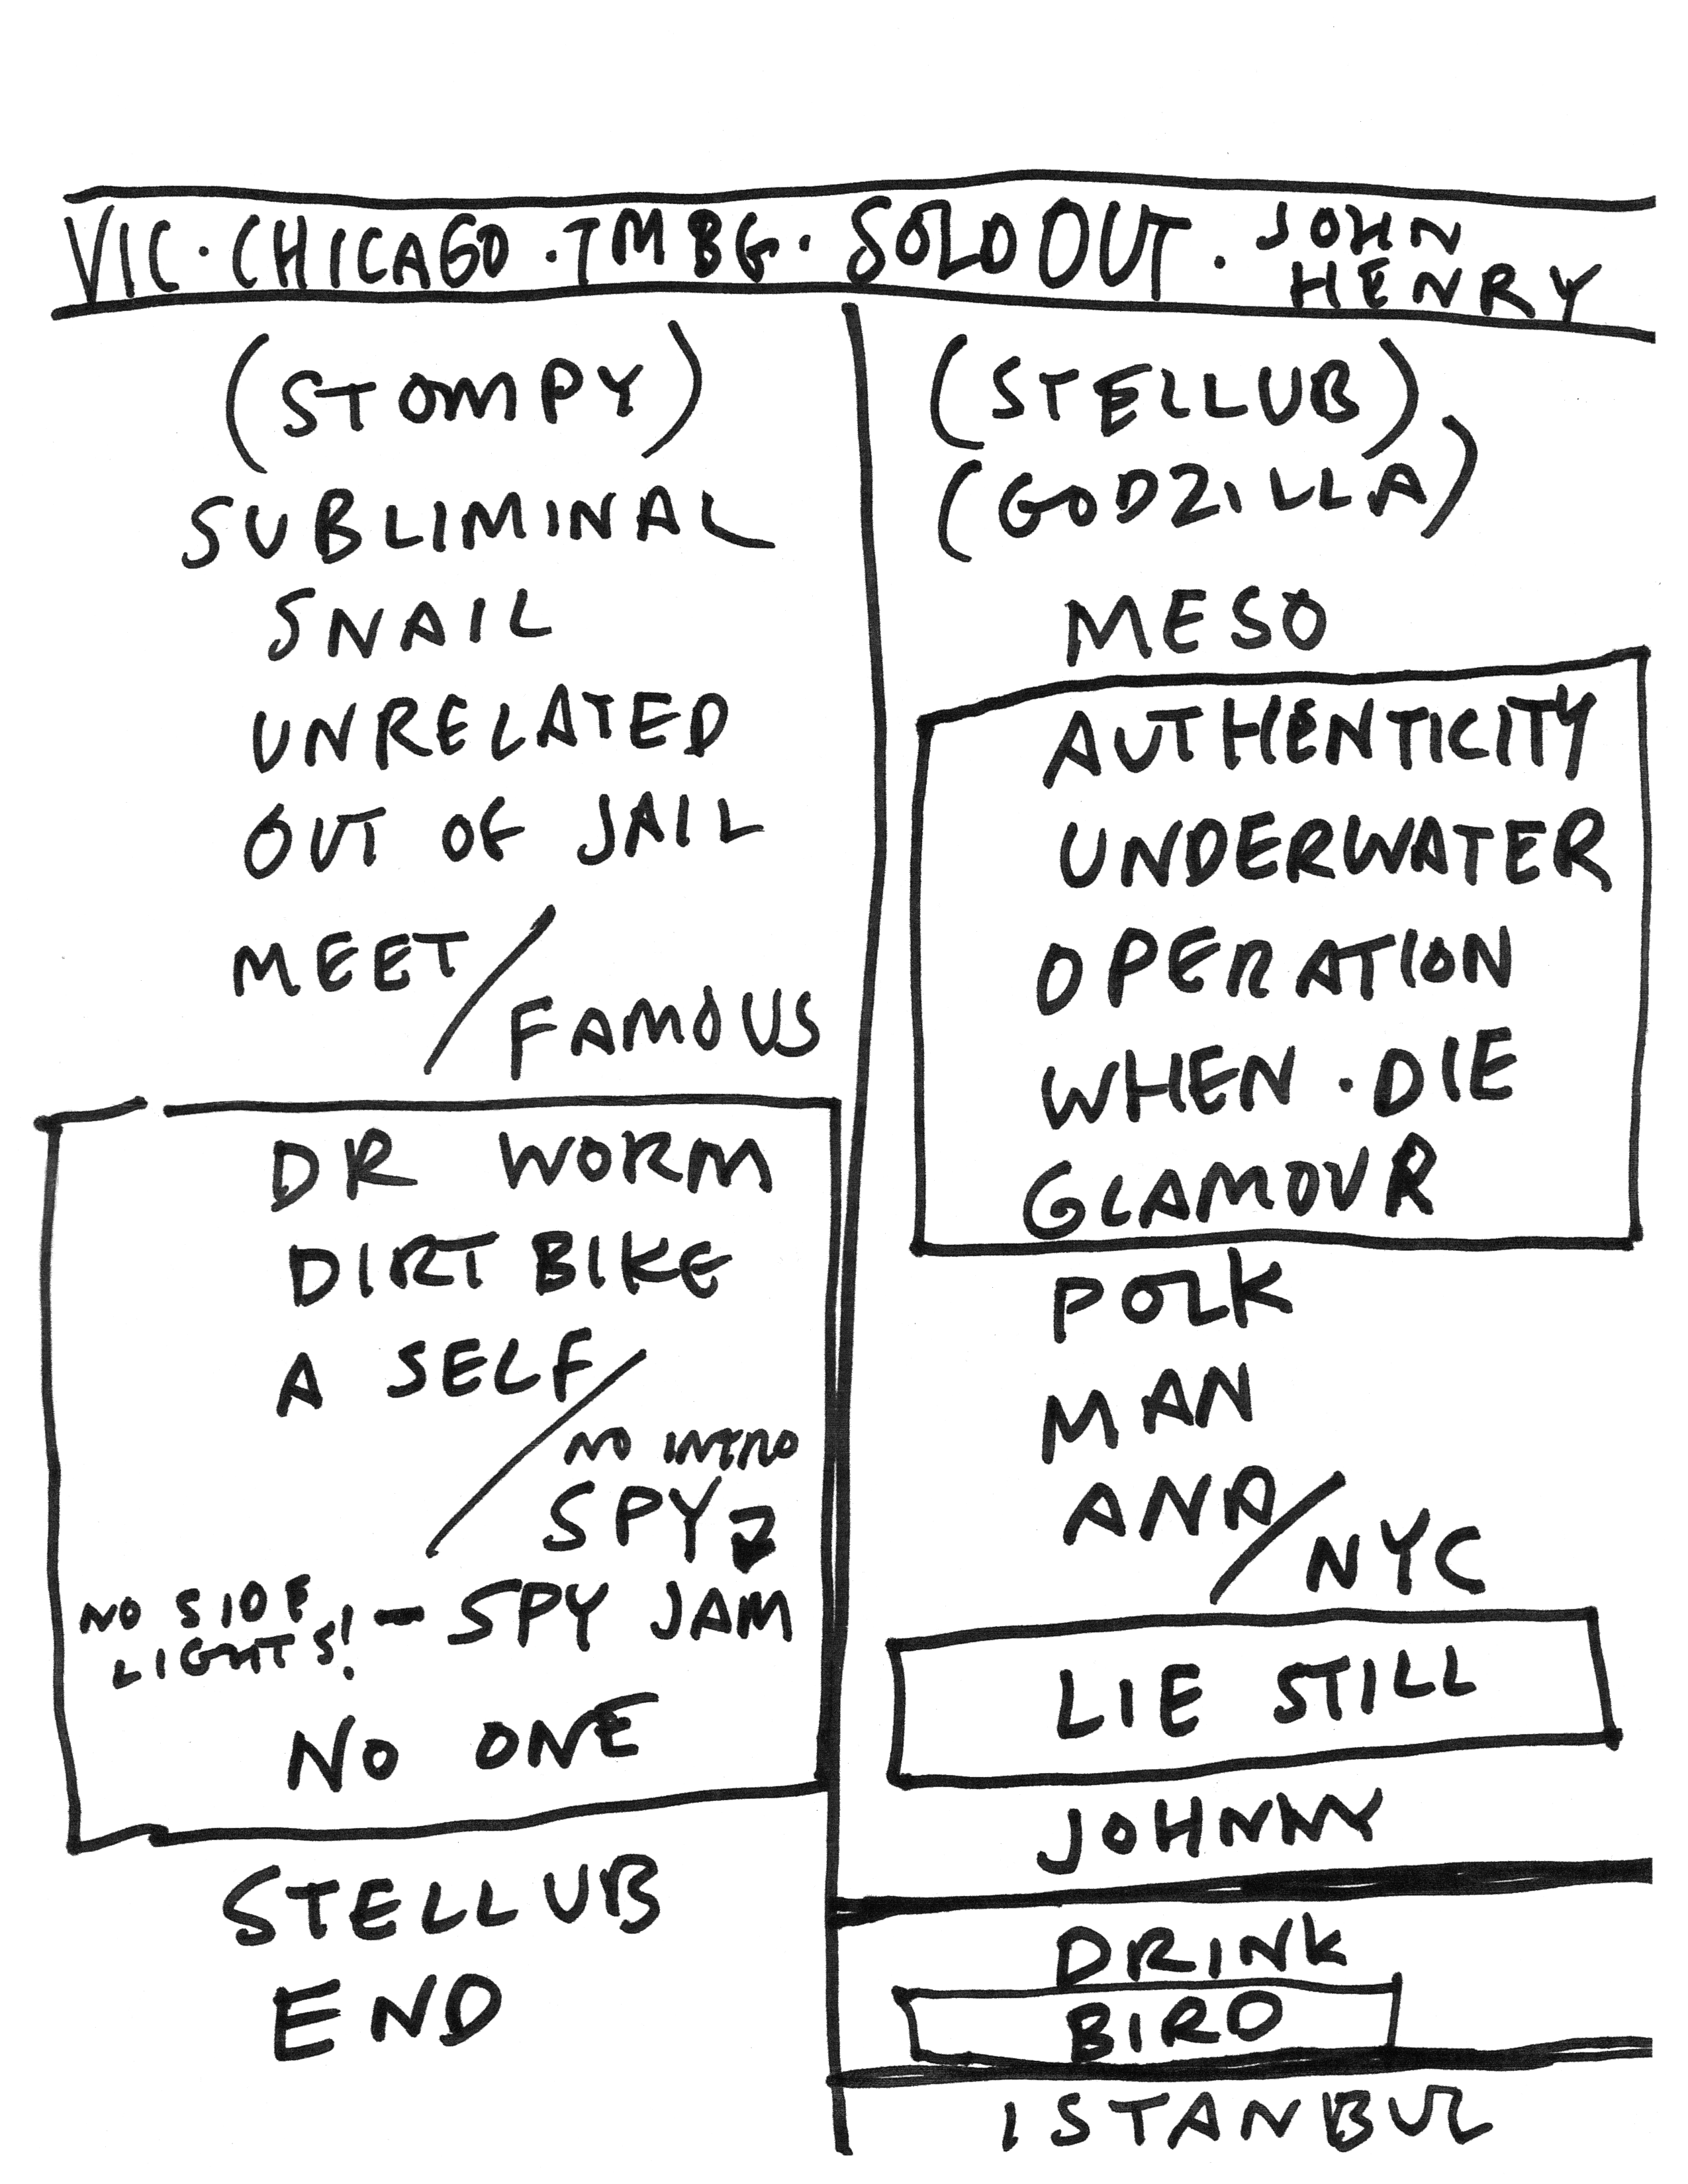 VIC · CHICAGO · TMBG · SOLD OUT · JOHN HENRY
(STOMPY)
SUBLIMINAL
SNAIL
UNRELATED
OUT OF JAIL
MEET / FAMOUS
DR WORM
DIRT BIKE
A SELF /
NO INTRO
SPY
NO SIDE LIGHTS! - SPY JAM
NO ONE
STELLUB
END
(STELLUB)
(GODZILLA)
MESO
AUTHENTICITY
UNDERWATER
OPERATION
WHEN · DIE
GLAMOUR
POLK
MAN
ANA / NYC
LIE STILL
JOHNNY
DRINK
BIRD
ISTANBUL